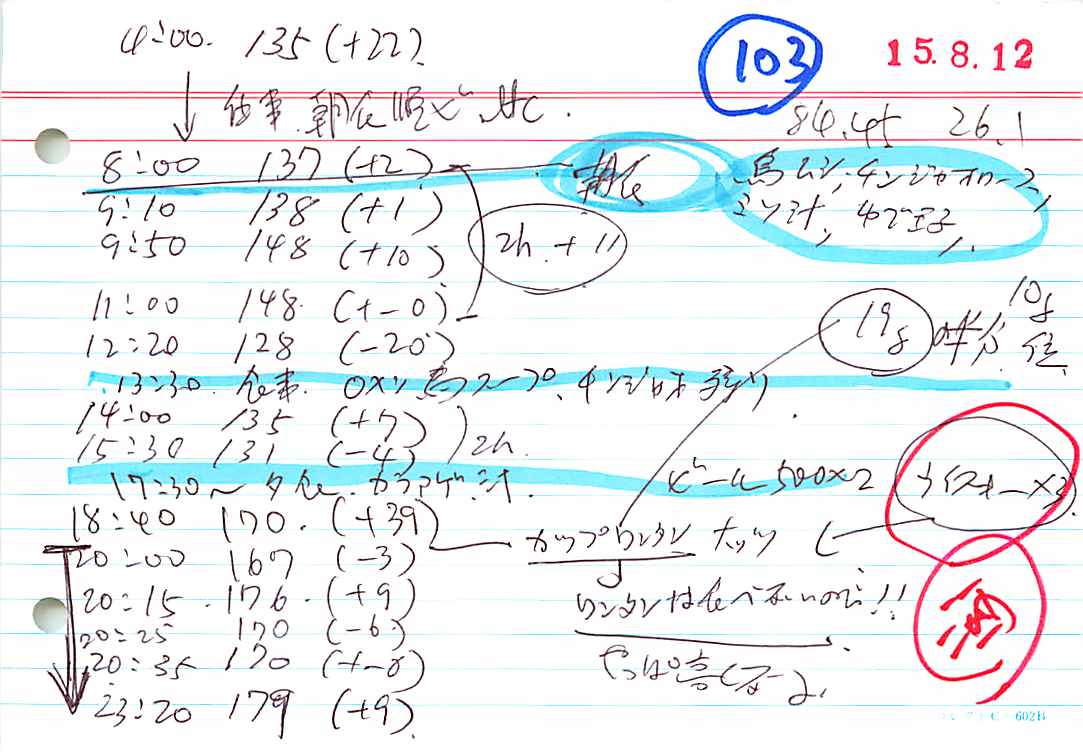 4:00. 135 (+22)
103
15.8.12
仕事. 朝食
84.45 26.1
8:00 137 (+2) 朝食 鳥ムシ, チンジャオロース,
ミソ汁, ゆで玉子
9:10 138 (+1)
9:50 148 (+10) 2h. +11
11:00 148. (+-0)
12:20 128 (-20)
19g 半分 10g 位
13:30 食事. 鳥スープ. チンジャオ 残り
14:00 135 (+7)
15:30 131 (-4) 2h.
17:30~ 夕食. カラアゲ. 汁.
ビール500×2
×3
18:40 170. (+39) カップワンタン ナッツ
20:00 167 (-3)
20:15. 176. (+9) ワンタンは食べないのに!!
酒
20:25 170 (-6)
20:35 170 (+-0) やっぱ
23:20 179 (+9)
602B